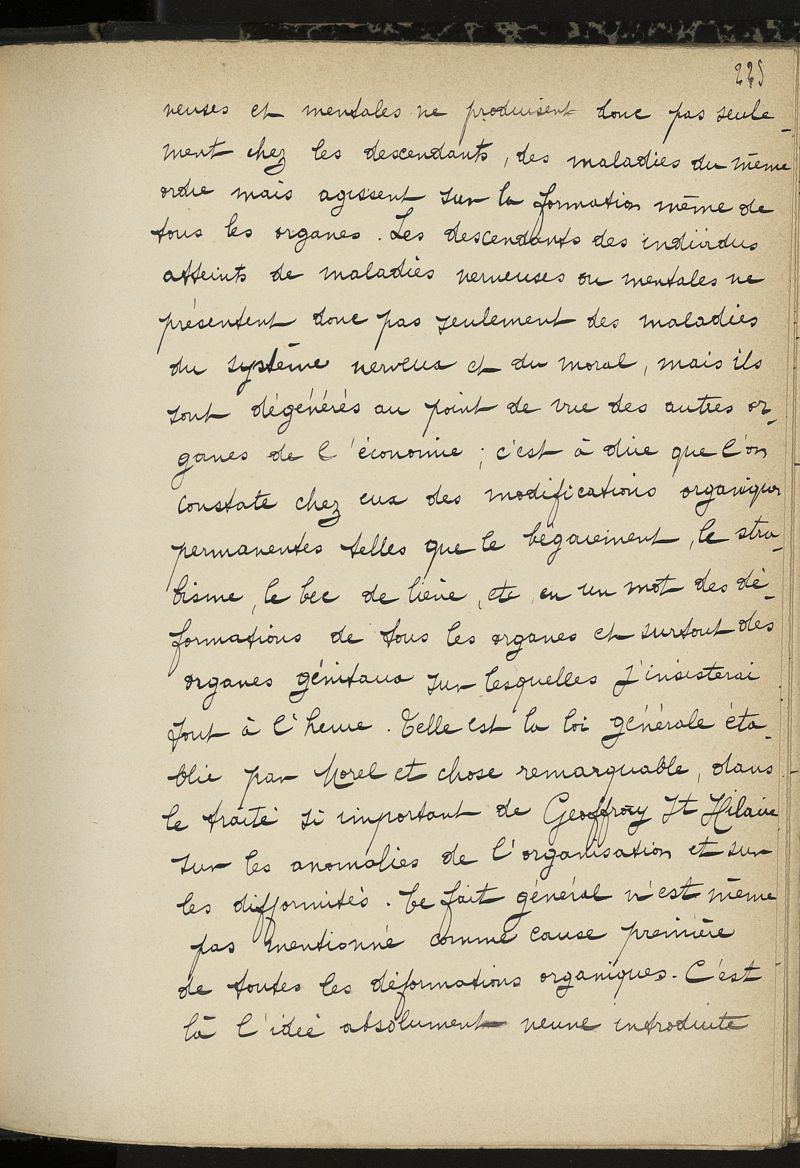 225
veuses et mentales ne produisent donc pas seule-
ment chez les descendants, des maladies du même
ordre mais agissent sur la formation même de
tous les organes. Les descendants des individus
atteints de maladies nerveuses ou mentales ne
présentent donc pas seulement des maladies
du système nerveux et du moral, mais ils
sont dégénérés au point de vue des autres or-
ganes de l'économie ; c'est à dire que l'on
constate chez eux des modifications organiques
permanentes telles que le bégaiement, le stra-
bisme, le bec de lièvre, etc en un mot des dé-
formations de tous les organes et surtout des
organes génitaux sur lesquelles j'insisterai
tout à l'heure. Telle est la loi générale éta-
blie par Morel et chose remarquable, dans
le traité si important de Geoffroy St Hilaire
sur les anomalies de l'organisation et sur
les difformités. Ce fait général n'est même
pas mentionné comme cause première
de toutes les déformations organiques. C'est
là l'idée absolument neuve introduite